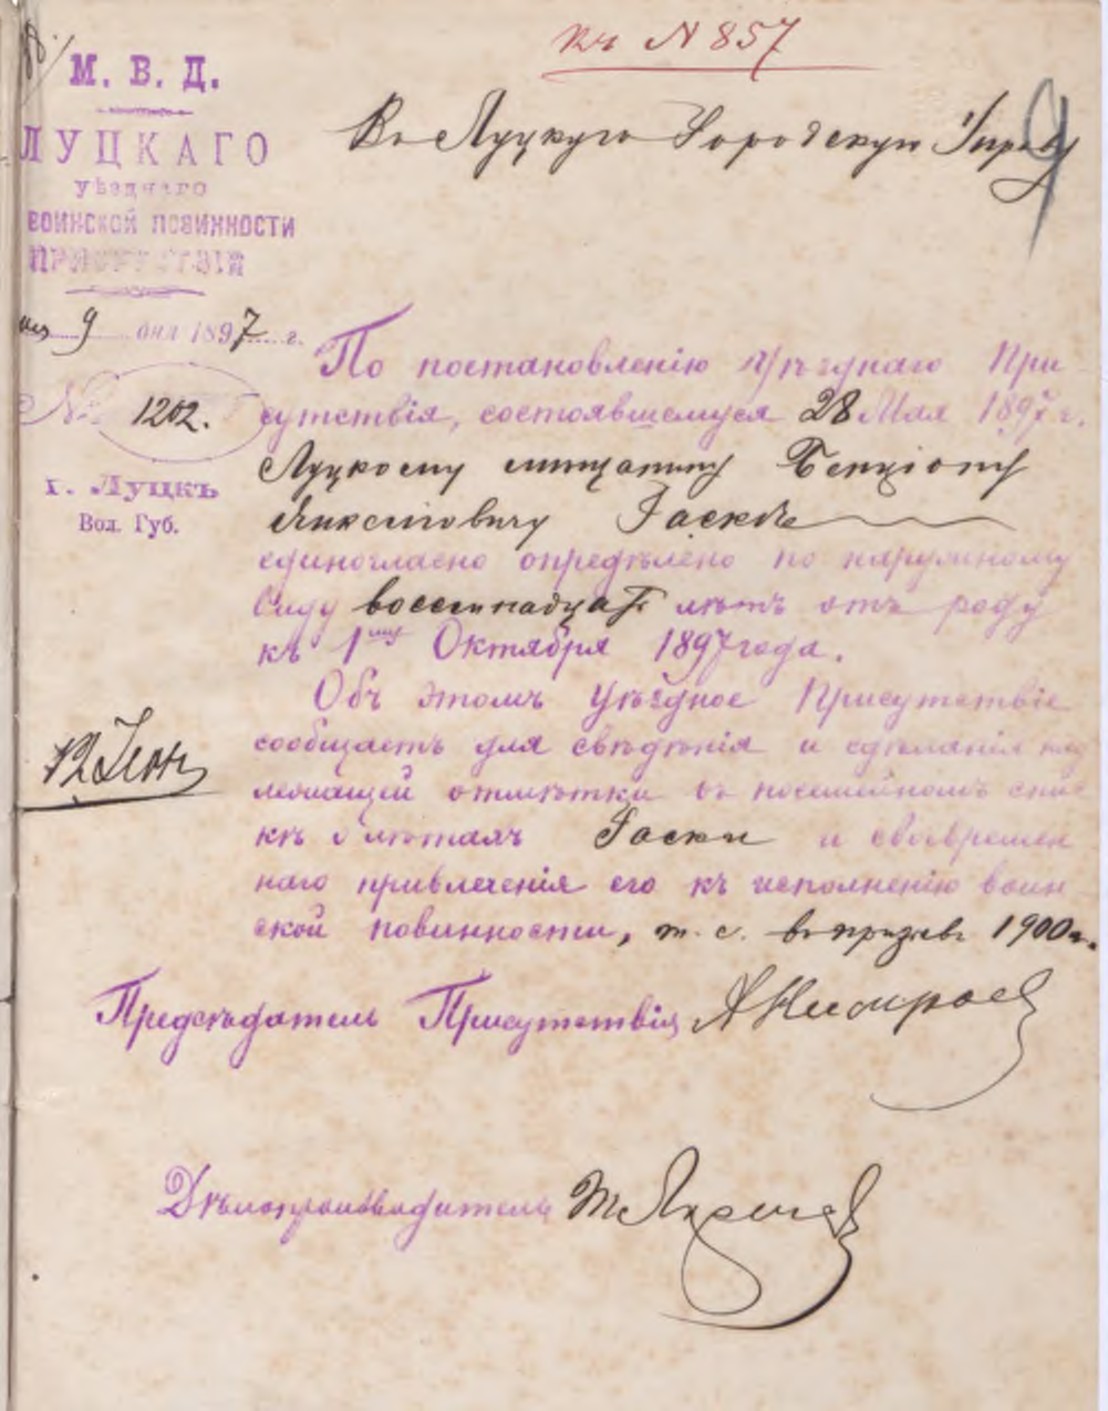 къ N 857
М. В. Д.
ЛУЦКАГО
уѣзднаго
ВОИНСКОЙ ПОВИННОСТИ
ПРИСУТСТВІЯ
9 дня 1897 г.
№ 1202.
г. Луцкъ
Вол. Губ.
Въ Луцкую Городскую Управу
По постановленію Уѣзднаго При
сутствія, состоявшемуся 28 Мая 1897 г.
Луцкому мѣщанину Бенціону
Гаскъ
единогласно опредѣлено по наружному
виду восемнадцать лѣтъ отъ роду
къ 1му Октября 1897 года.
Объ этомъ Уѣздное Присутствіе
сообщаетъ для свѣдѣнія и сдѣланія над
лежащей отмѣтки въ посемейномъ спис
кѣ о лѣтахъ Гаски и своевремен
наго привлеченія его къ исполненію воин
ской повинности, т. е. въ призывъ 1900 г.
12 Іюня
Предсѣдатель Присутствія
Дѣлопроизводитель